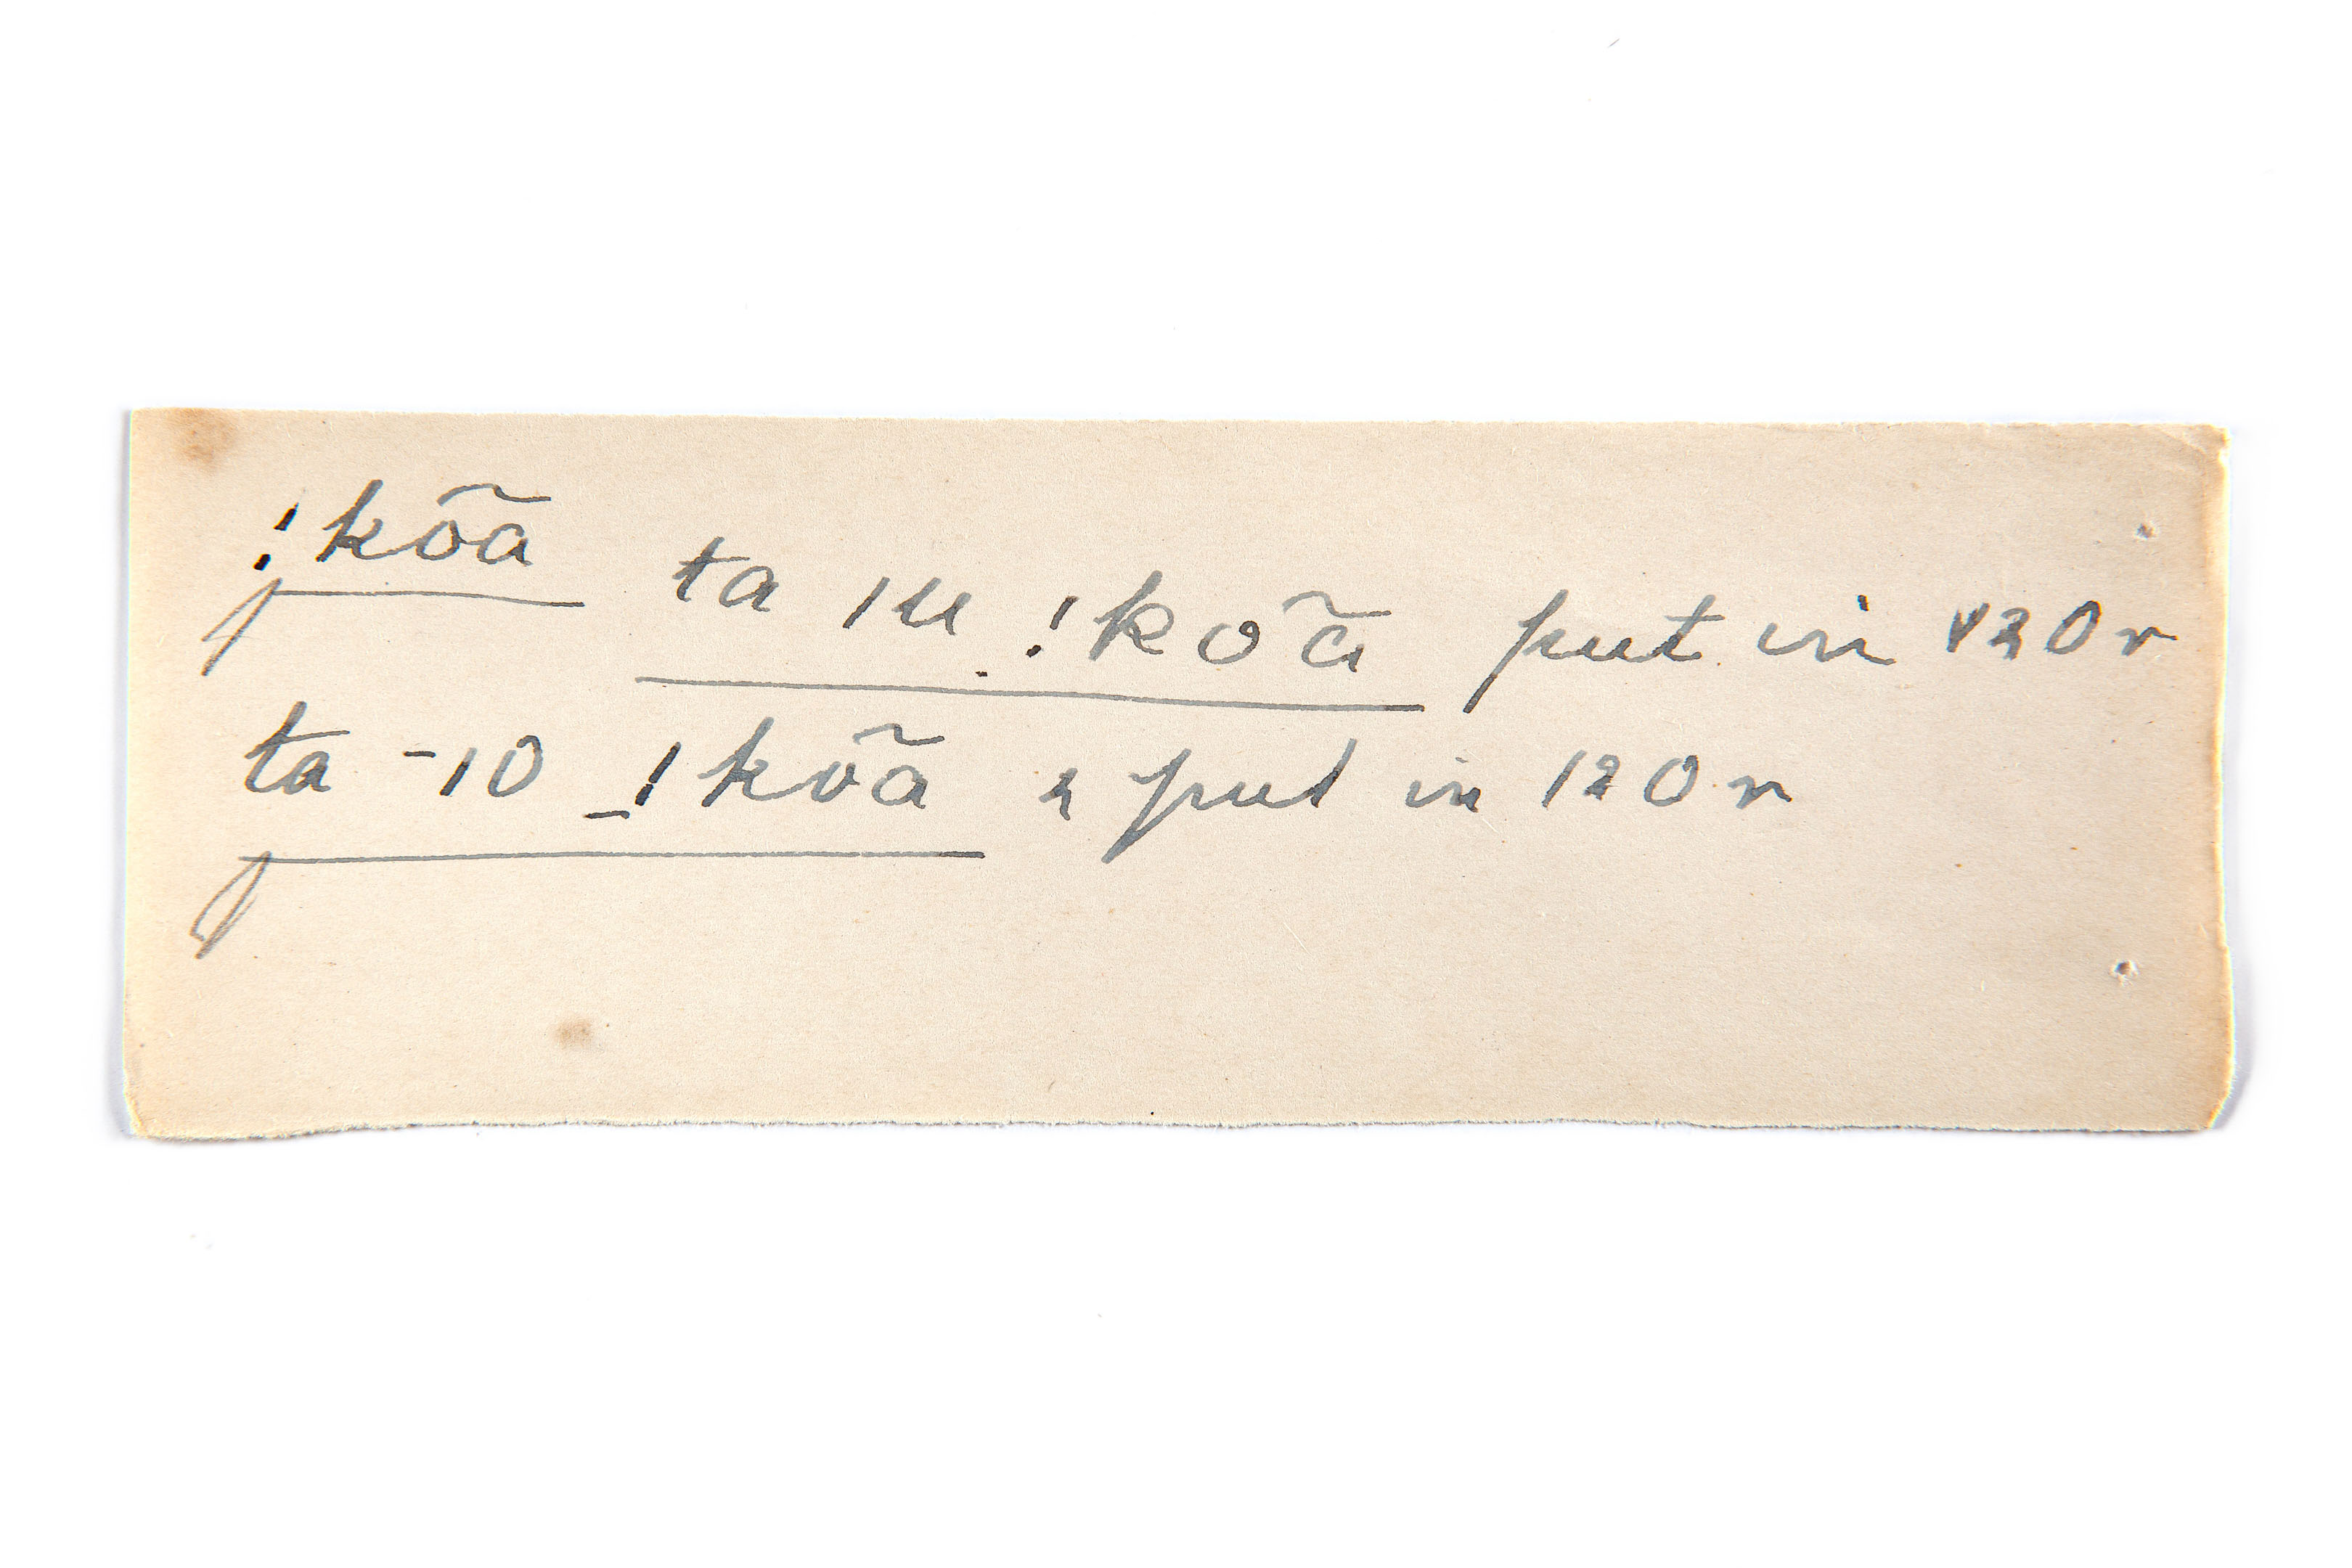 !kõã ta ıu !kõã put in 120 r
ta -ıo _!kõã & put in 120 r